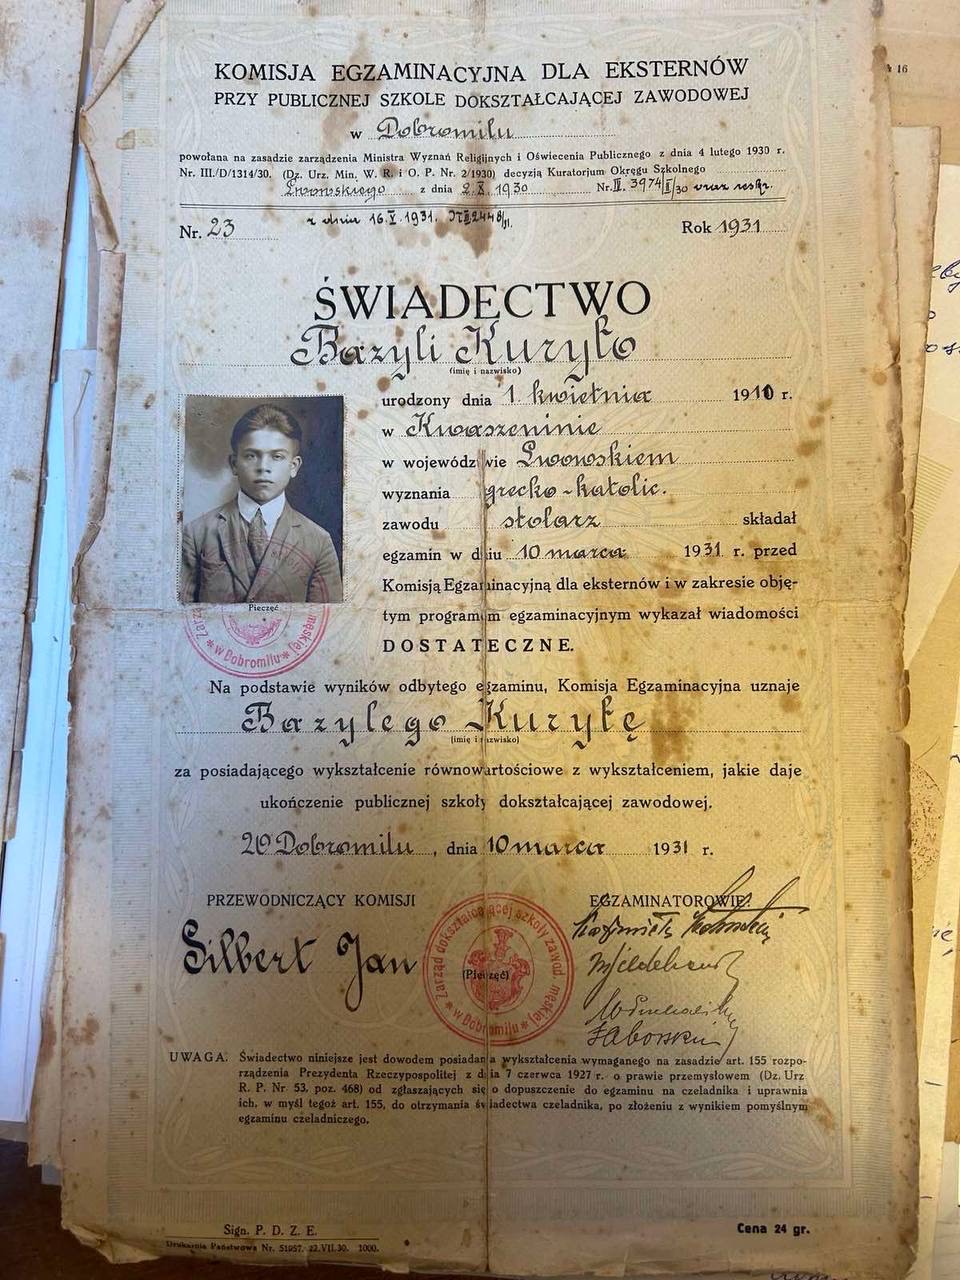 KOMISJA EGZAMINACYJNA DLA EKSTERNÓW
PRZY PUBLICZNEJ SZKOLE DOKSZTAŁCAJĄCEJ ZAWODOWEJ
w Dobromilu
powołana na zasadzie zarządzenia Ministra Wyznań Religijnych i Oświecenia Publicznego z dnia 4 lutego 1930 r.
Nr. III./D/1314/30. (Dz. Urz. Min. W. R. i O. P. Nr. 2/1930) decyzją Kuratorjum Okręgu Szkolnego
Lwowskiego z dnia 2.X.1930 Nr. II. 3974/30 oraz
z dnia 16.V.1931.
Nr. 23 Rok 1931
ŚWIADECTWO
Bazyli Kuryło
(imię i nazwisko)
urodzony dnia 1. kwietnia 1910 r.
w Kwaszeninie
w województwie Lwowskiem
wyznania grecko-katolic.
zawodu stolarz składał
egzamin w dniu 10 marca 1931 r. przed
Komisją Egzaminacyjną dla eksternów i w zakresie obję-
tym programem egzaminacyjnym wykazał wiadomości
DOSTATECZNE.
Pieczęć
w Dobromilu
męskiej
Na podstawie wyników odbytego egzaminu, Komisja Egzaminacyjna uznaje
Bazylego Kuryłę
(imię i nazwisko)
za posiadającego wykształcenie równowartościowe z wykształceniem, jakie daje
ukończenie publicznej szkoły dokształcającej zawodowej.
W Dobromilu, dnia 10 marca 1931 r.
PRZEWODNICZĄCY KOMISJI EGZAMINATOROWIE:
Silbert Jan
(Pieczęć)
Zarząd dokształcającej szkoły zawod. męskiej
w Dobromilu
UWAGA: Świadectwo niniejsze jest dowodem posiadania wykształcenia wymaganego na zasadzie art. 155 rozpo-
rządzenia Prezydenta Rzeczypospolitej z dnia 7 czerwca 1927 r. o prawie przemysłowem (Dz. Urz
R. P. Nr 53, poz. 468) od zgłaszających się o dopuszczenie do egzaminu na czeladnika i uprawnia
ich, w myśl tegoż art. 155, do otrzymania świadectwa czeladnika, po złożeniu z wynikiem pomyślnym
egzaminu czeladniczego.
Sign. P. D. Z. E. Cena 24 gr.
Drukarnia Państwowa Nr. 51957. 22.VII.30. 1000.